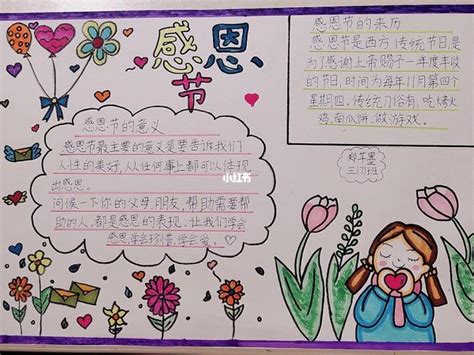 感恩节
感恩节的来历
感恩节是西方传统节日,是
为了感谢上帝赐予一年度丰收
的节日,时间为每年11月第四个
星期四,传统习俗有:吃烤火
鸡,南瓜饼,做游戏。
三(1)班
感恩节的意义
感恩节最主要的意义是要告诉我们
人性的美好,从任何事上都可以体现
出感恩。
问候一下你的父母朋友,帮助需要帮
助的人,都是感恩的表现,让我们学会
感恩学会珍惜,学会爱。
小红书